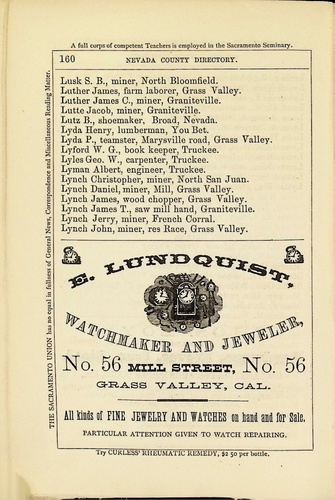 A full corps of competent Teachers is employed in the Sacramento Seminary.
160 NEVADA COUNTY DIRECTORY.
Lusk S. B., miner, North Bloomfield.
Luther James, farm laborer, Grass Valley.
Luther James C., miner, Graniteville.
Lutte Jacob, miner, Graniteville.
Lutz B., shoemaker, Broad, Nevada.
Lyda Henry, lumberman, You Bet.
Lyda P., teamster, Marysville road, Grass Valley.
Lyford W. G., book keeper, Truckee.
Lyles Geo. W., carpenter, Truckee.
Lyman Albert, engineer, Truckee.
Lynch Christopher, miner, North San Juan.
Lynch Daniel, miner, Mill, Grass Valley.
Lynch James, wood chopper, Grass Valley.
Lynch James T., saw mill hand, Graniteville.
Lynch Jerry, miner, French Corral.
Lynch John, miner, res Race, Grass Valley.
E. LUNDQUIST,
WATCHMAKER AND JEWELER,
No. 56 MILL STREET, No. 56
GRASS VALLEY, CAL.
All kinds of FINE JEWELRY AND WATCHES on hand and for Sale.
PARTICULAR ATTENTION GIVEN TO WATCH REPAIRING.
Try CURLESS' RHEUMATIC REMEDY, $2 50 per bottle.
THE SACRAMENTO UNION has no equal in fullness of General News, Correspondence and Miscellaneous Reading Matter.